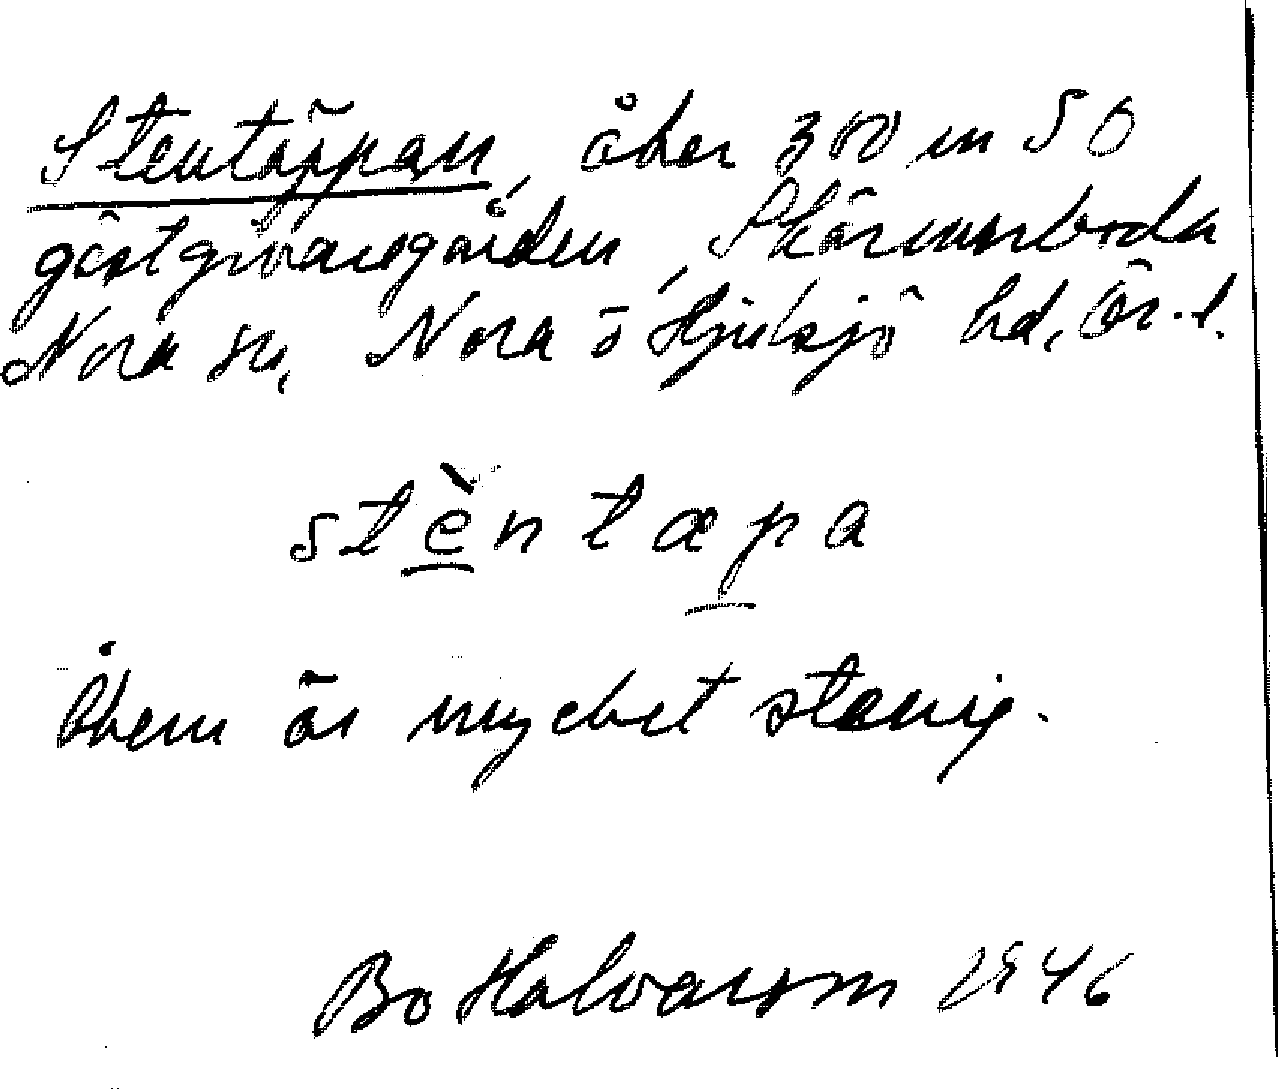 Stentäppan, åker 300 m SO
gästgivaregården, Skärmarboda
Nora sn, Nora o Hjulsjö hd, Ör. l.
stèntæpa
Åkern är mycket stenig.
Bo Halvarson 1946